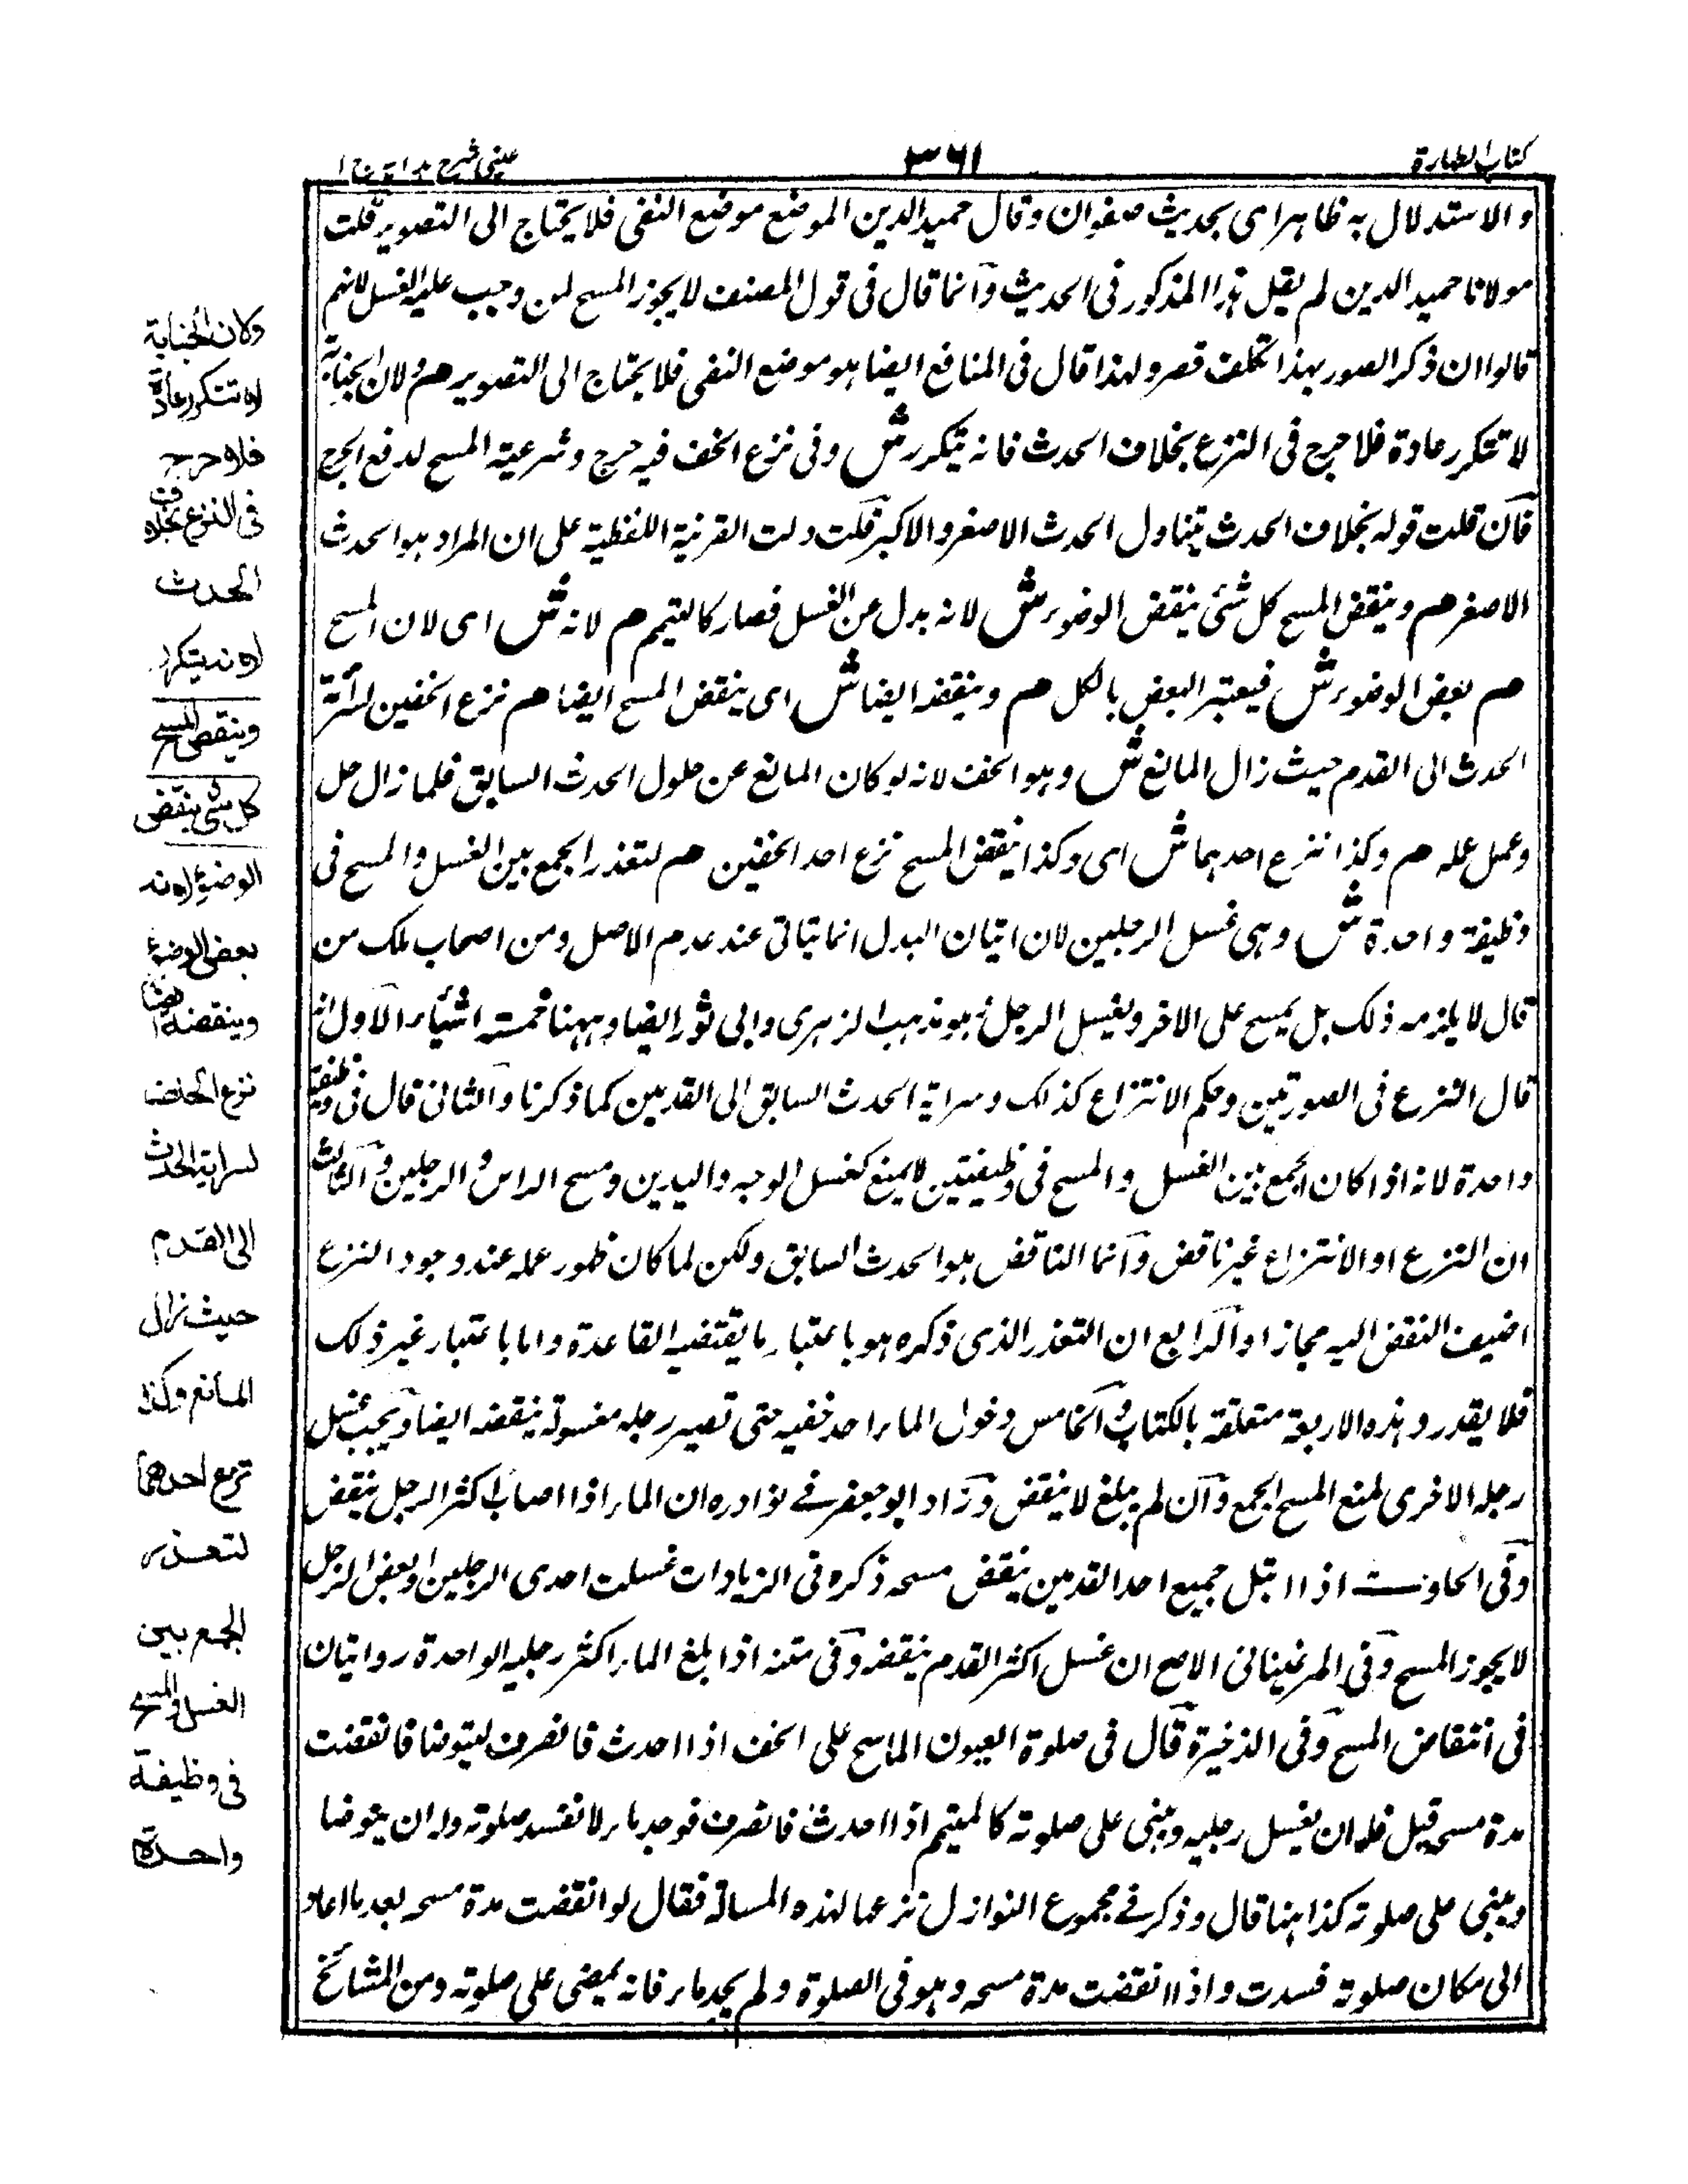 كتاب الطهارة
٣٦١
عينى شرح هداية ج ١
و الاستدلال به ظاهرا اى بحديث صفوان وقال حميد الدين الموضع موضع النفى فلا يحتاج الى التصوير قلت
مولانا حميد الدين لم يقل هذا المذكور فى الحديث وانما قال فى قول المصنف لا يجوز المسح لمن وجب عليه الغسل لانهم
قالوا ان ذكر الصور بهذا تكلف قصر ولهذا قال فى المنافع ايضا هو موضع النفى فلا يحتاج الى التصوير هم ولان الجنابة
لا تتكرر عادة فلا حرج فى النزع بخلاف الحدث فانه يتكرر ش وفى نزع الخف فيه حرج وشرعية المسح لدفع الحرج
فان قلت قوله بخلاف الحدث يتناول الحدث الاصغر والاكبر قلت دلت القرينة اللفظية على ان المراد هو الحدث
الاصغر هم وينقض المسح كل شئ ينقض الوضوء ش لانه بدل عن الغسل فصار كالتيمم هم لانه ش اى لان المسح
هم بعض الوضوء ش فيعتبر البعض بالكل هم وينقضه ايضا ش اى ينقض المسح ايضا هم نزع الخفين لسراية
الحدث الى القدم حيث زال المانع ش وهو الخف لانه لو كان المانع عن حلول الحدث السابق فلما زال حل
وعمل عمله هم وكذا نزع احدهما ش اى وكذا ينقض المسح نزع احد الخفين هم لتعذر الجمع بين الغسل والمسح فى
وظيفة واحدة ش وهى غسل الرجلين لان اتيان البدل انما يتاتى عند عدم الاصل ومن اصحاب ملك من
قال لا يلزمه ذلك بل يمسح على الاخر ويغسل الرجل هو مذهب الزهرى وابى ثور ايضا وههنا خمسة اشياء الاول انه
قال النزع فى الصورتين وحكم الانتزاع كذلك وسراية الحدث السابق الى القدمين كما ذكرنا والثانى قال فى وظيفة
واحدة لانه اذا كان الجمع بين الغسل والمسح فى وظيفتين لا يمنع كغسل الوجه واليدين ومسح الراس والرجلين والثالث
ان النزع او الانتزاع غير ناقض وانما الناقض هو الحدث السابق ولكن لما كان ظهور عمله عند وجود النزع
اضيف النقض اليه مجازا والرابع ان التعذر الذى ذكره هو باعتبار ما يقتضيه القاعدة واما باعتبار غير ذلك
فلا يقدر وهذه الاربعة متعلقة بالكتاب والخامس دخول الماء احد خفيه حتى تصير رجله مغسولة ينقضه ايضا ويجب غسل
رجله الاخرى لمنع المسح الجمع وان لم يبلغ لا ينقض وزاد ابو جعفر فى نوادره ان الماء اذا اصاب اكثر الرجل ينقض
وفى الحاوى اذا ابتل جميع احد القدمين ينقض مسحه ذكره فى الزيادات غسلت احدى الرجلين او بعض الرجل
لا يجوز المسح وفى المرغينانى الاصح ان غسل اكثر القدم ينقضه وفى متنه اذا بلغ الماء اكثر رجليه الواحدة روايتان
فى انتقاض المسح وفى الذخيرة قال فى صلوة العيون الماسح على الخف اذا احدث فانصرف ليتوضا فانقضت
مدة مسحه قيل فله ان يغسل رجليه ويبنى على صلوته كالمتيمم اذا احدث فانصرف فوجد ماء لا تفسد صلوته وله ان يتوضا
ويبنى على صلوته كذا هنا قال وذكر فى مجموع النوازل نزعها لهذه المسالة فقال لو انقضت مدة مسحه بعد ما اعاد
الى مكان صلوته فسدت واذا انقضت مدة مسحه وهو فى الصلوة ولم يجد ماء فانه يمضى على صلوته ومن المشائخ
ولان الجنابة
لا تتكرر عادة
فلا حرج
فى النزع بخلاف
الحدث
لانه يتكرر
وينقض المسح
كل شئ ينقض
الوضوء لانه
بعض الوضوء
وينقضه ايضا
نزع الخف
لسراية الحدث
الى القدم
حيث زال
المانع وكذا
نزع احدهما
لتعذر
الجمع بين
الغسل والمسح
فى وظيفة
واحدة